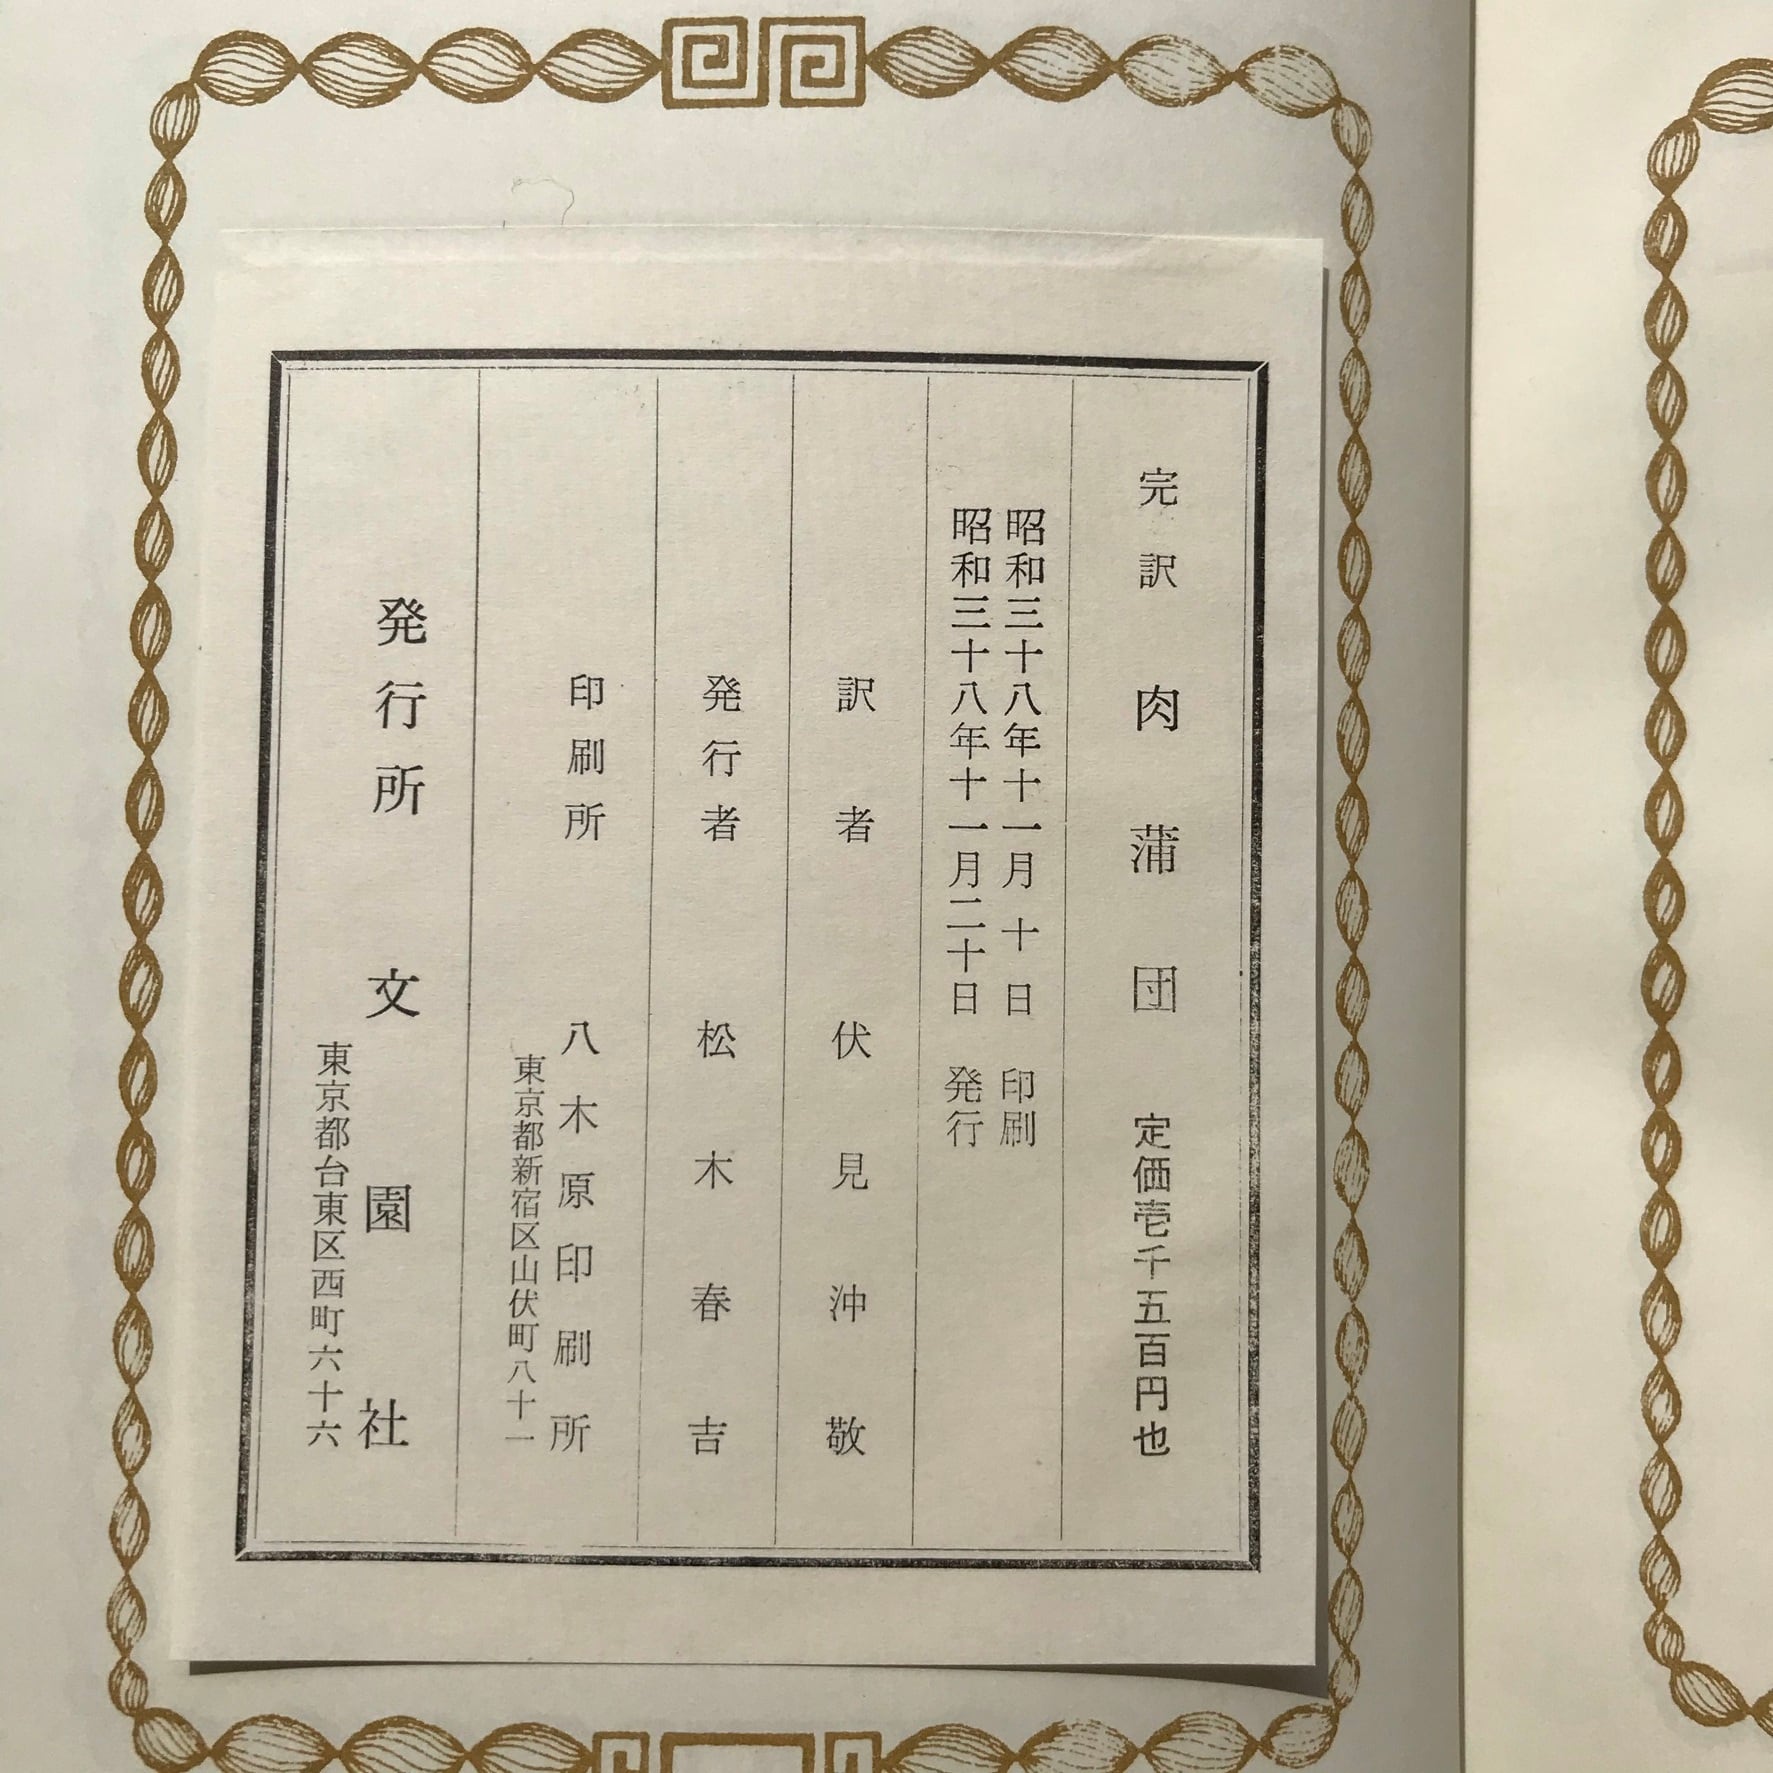 完訳 肉蒲団 定価壱千五百円也
昭和三十八年十一月十日 印刷
昭和三十八年十一月二十日 発行
訳者 伏見沖敬
発行者 松木春吉
印刷所 八木原印刷所
東京都新宿区山伏町八十一
発行所 文園社
東京都台東区西町六十六